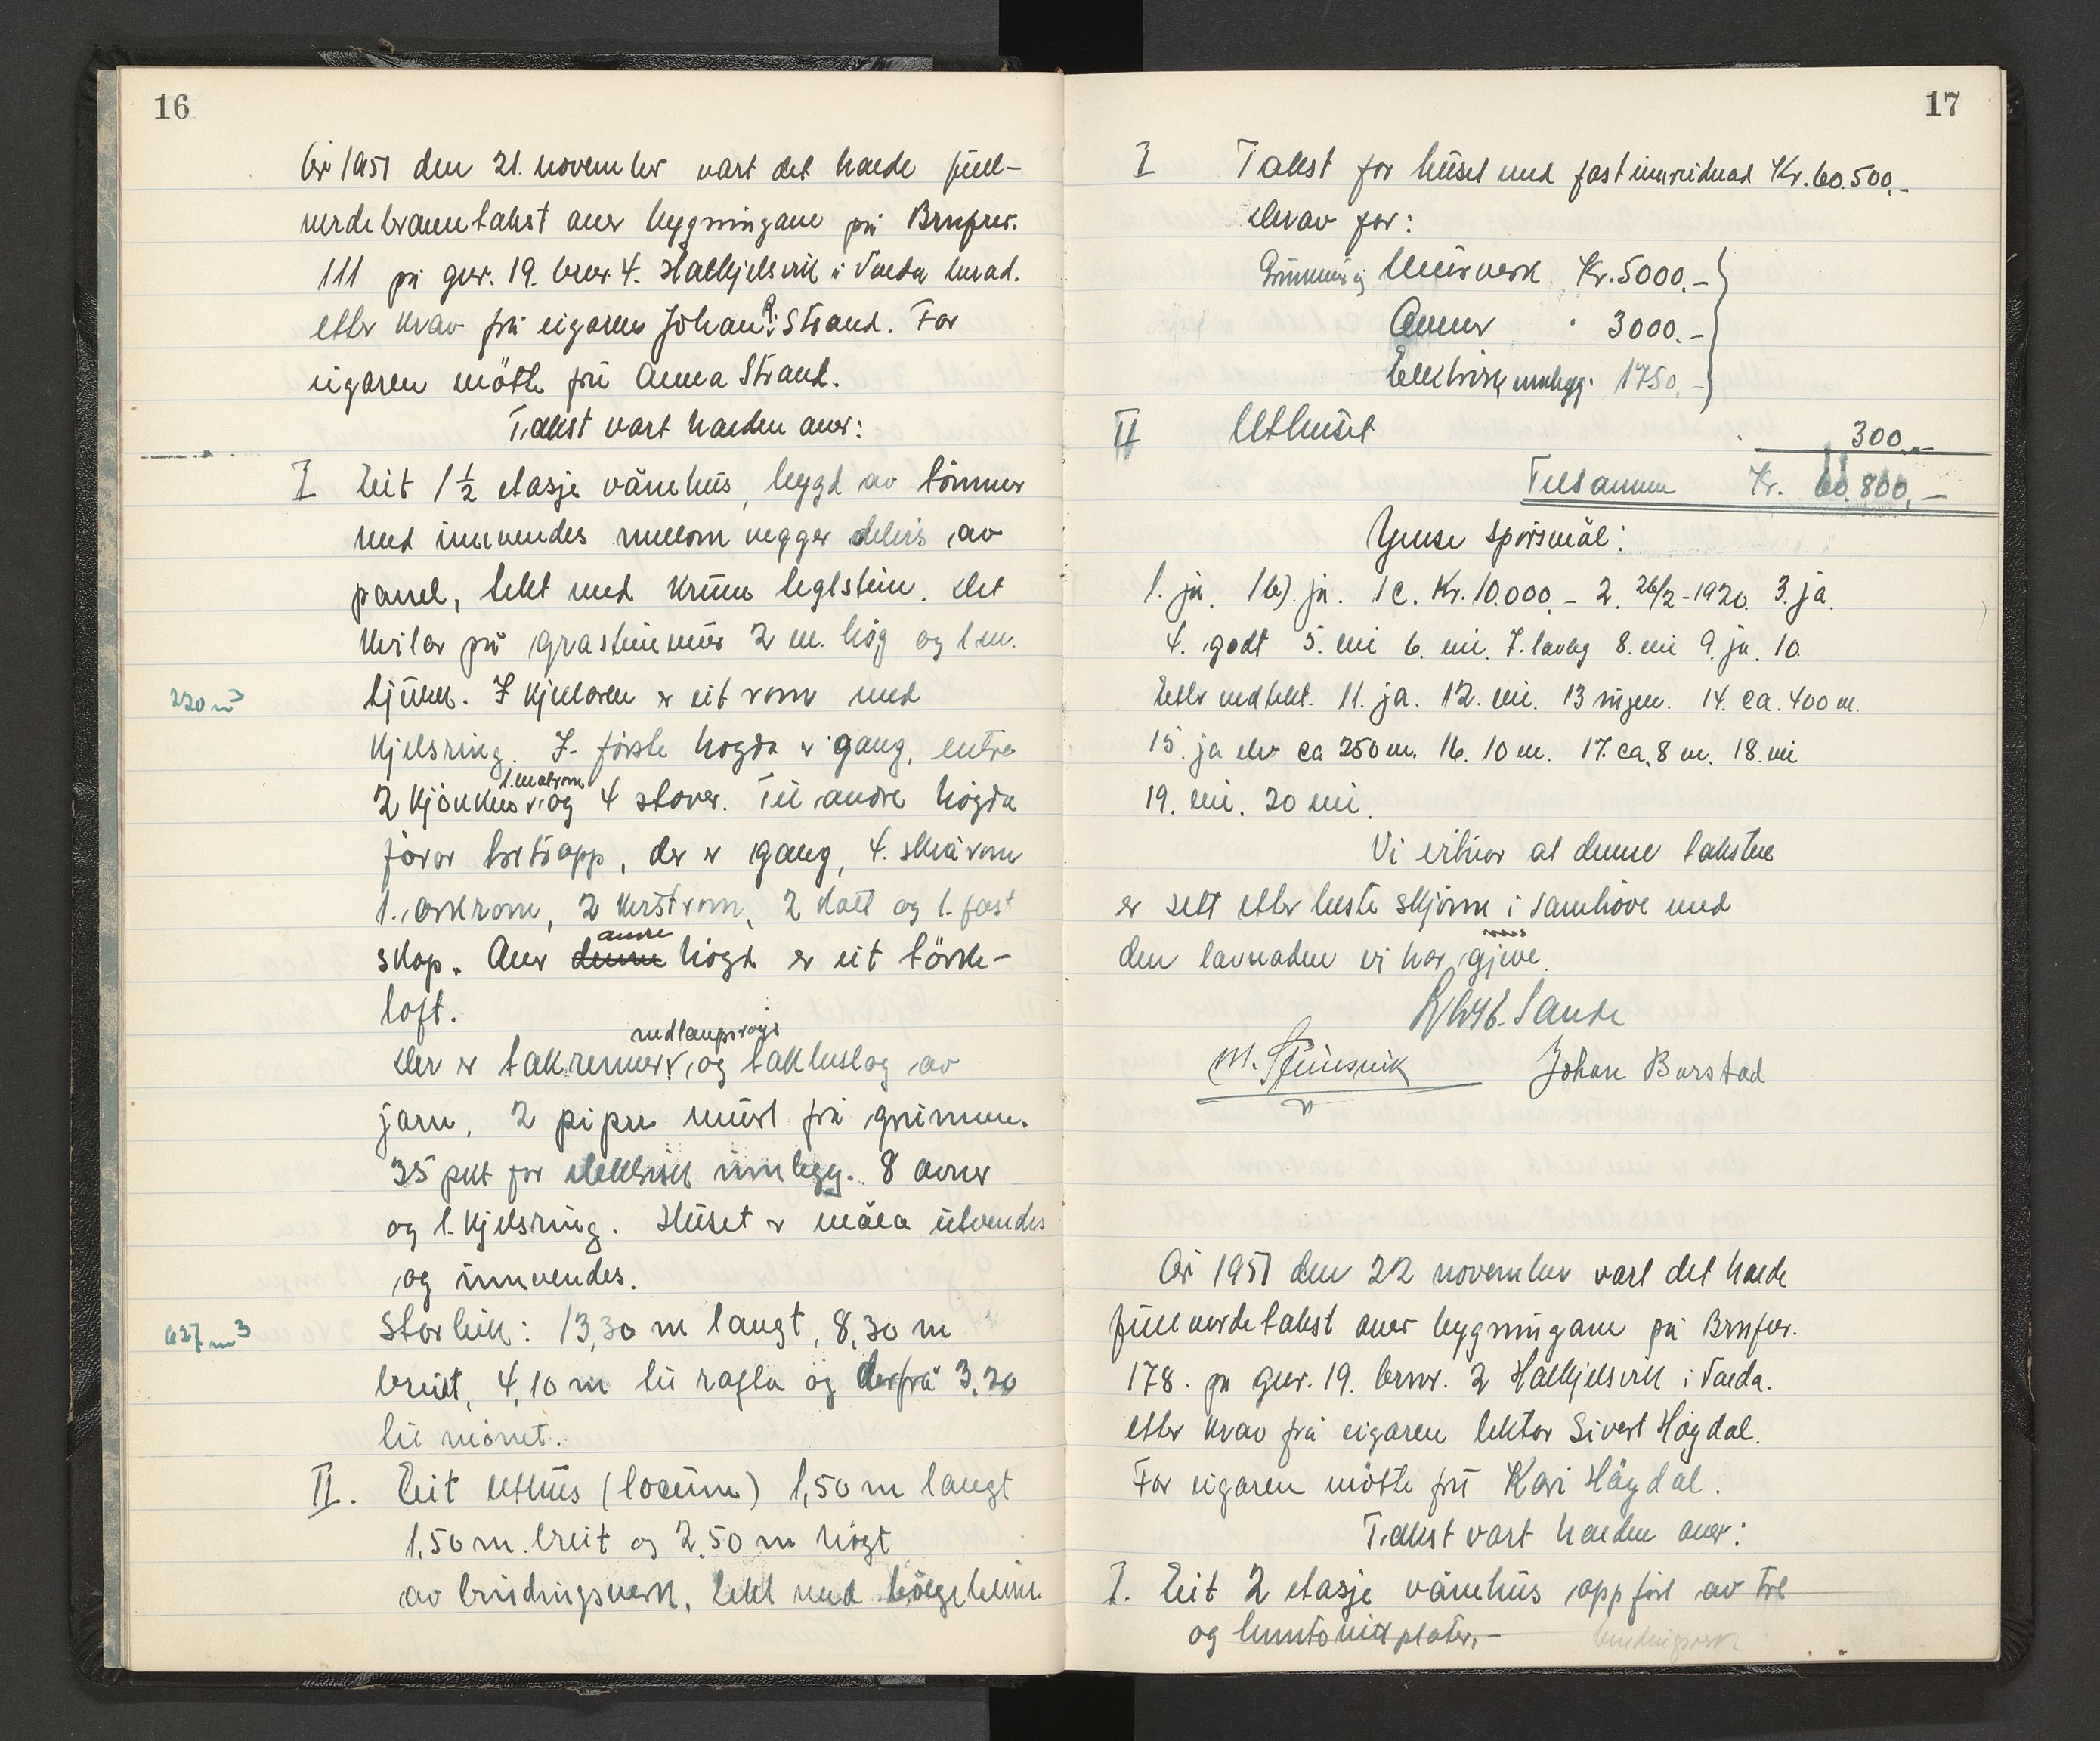 16
År 1951 den 21. november vart det halde full-
verdebranntakst over bygningane på Brnfnr.
111 på gnr. 19. bnr. 4. Hallkjelsvik i Volda herad.
etter krav frå eigaren Johan P. Strand. For
eigaren møtte frü Anna Strand.
Takst vart halden over:
I Eit 1 1/2 etasje vånehus, bygd av tømmer
med innvendes mellom vegger delvis av
panel, tekt med krum teglstein. Det
kviler på gråsteinmur 2 m. høg og 1 m.
220 m3
tjukk. I kjellaren er eit rom med
kjelsring. I første høgda er gang, entre
1. matrom
2 kjøkken v og 4 stover. Til andre høgda
fører tretropp, der er gang, 4. skrårom
1. arkrom, 2 kvistrom, 2 kott og 1. fast
andre
skap. Over denne høgd er eit tørke-
loft.
nedlaupsrøyr
Der er takrenner v og takbeslag av
jarn, 2 piper murt frå grunnen.
35 pkt for elektrisk innlegg. 8 omner
og 1. kjelsring. Huset er måla utvendes
og innvendes.
637 m3
Storleik: 13,30 m langt, 8,30 m
breitt, 4,10 m til rafta og derfrå 3,20
til mønet.
II. Eit uthus (locum) 1,50 m langt
1,50 m. breit og 2,50 m høgt
av bindingsverk, tekt med bølgeblikk.
17
I Takst for huset med fast innreidnad Kr. 60.500,-
Derav for:
Grunnmur og Murverk Kr. 5000.-
Omner " 3000.-
Elektrisk innlegg. 1750.-
II Uthuset " 300.-
Tilsamen Kr. 60.800,-
Ymse spørsmål:
1. ja. 1b). ja. 1c. Kr. 10.000.- 2. 26/2-1920. 3. ja.
4. godt 5. nei 6. nei. 7. lovleg 8. nei 9. ja. 10.
Eller vedtekt. 11. ja. 12. nei. 13 ingen. 14. ca. 400 m.
15. ja elv ca 250 m. 16. 10 m. 17. ca. 8 m. 18. nei
19. nei. 20 nei.
Vi erklærer at denne taksten
er sett etter beste skjønn i samhøve med
den lovnaden vi har gjeve.
Sande
M. Steinsvik Johan Barstad
År 1951 den 22 november vart det halde
fullverdetakst over bygningane på Brnfnr.
178. på gnr. 19. brnr. 2 Hallkjelsvik i Volda.
etter krav frå eigaren lektor Sivert Høgdal.
For eigaren møtte frü Kari Høgdal.
Takst vart halden over:
I. Eit 2 etasje vånehus oppført av tre
og huntonitt plater.- bindingsverk